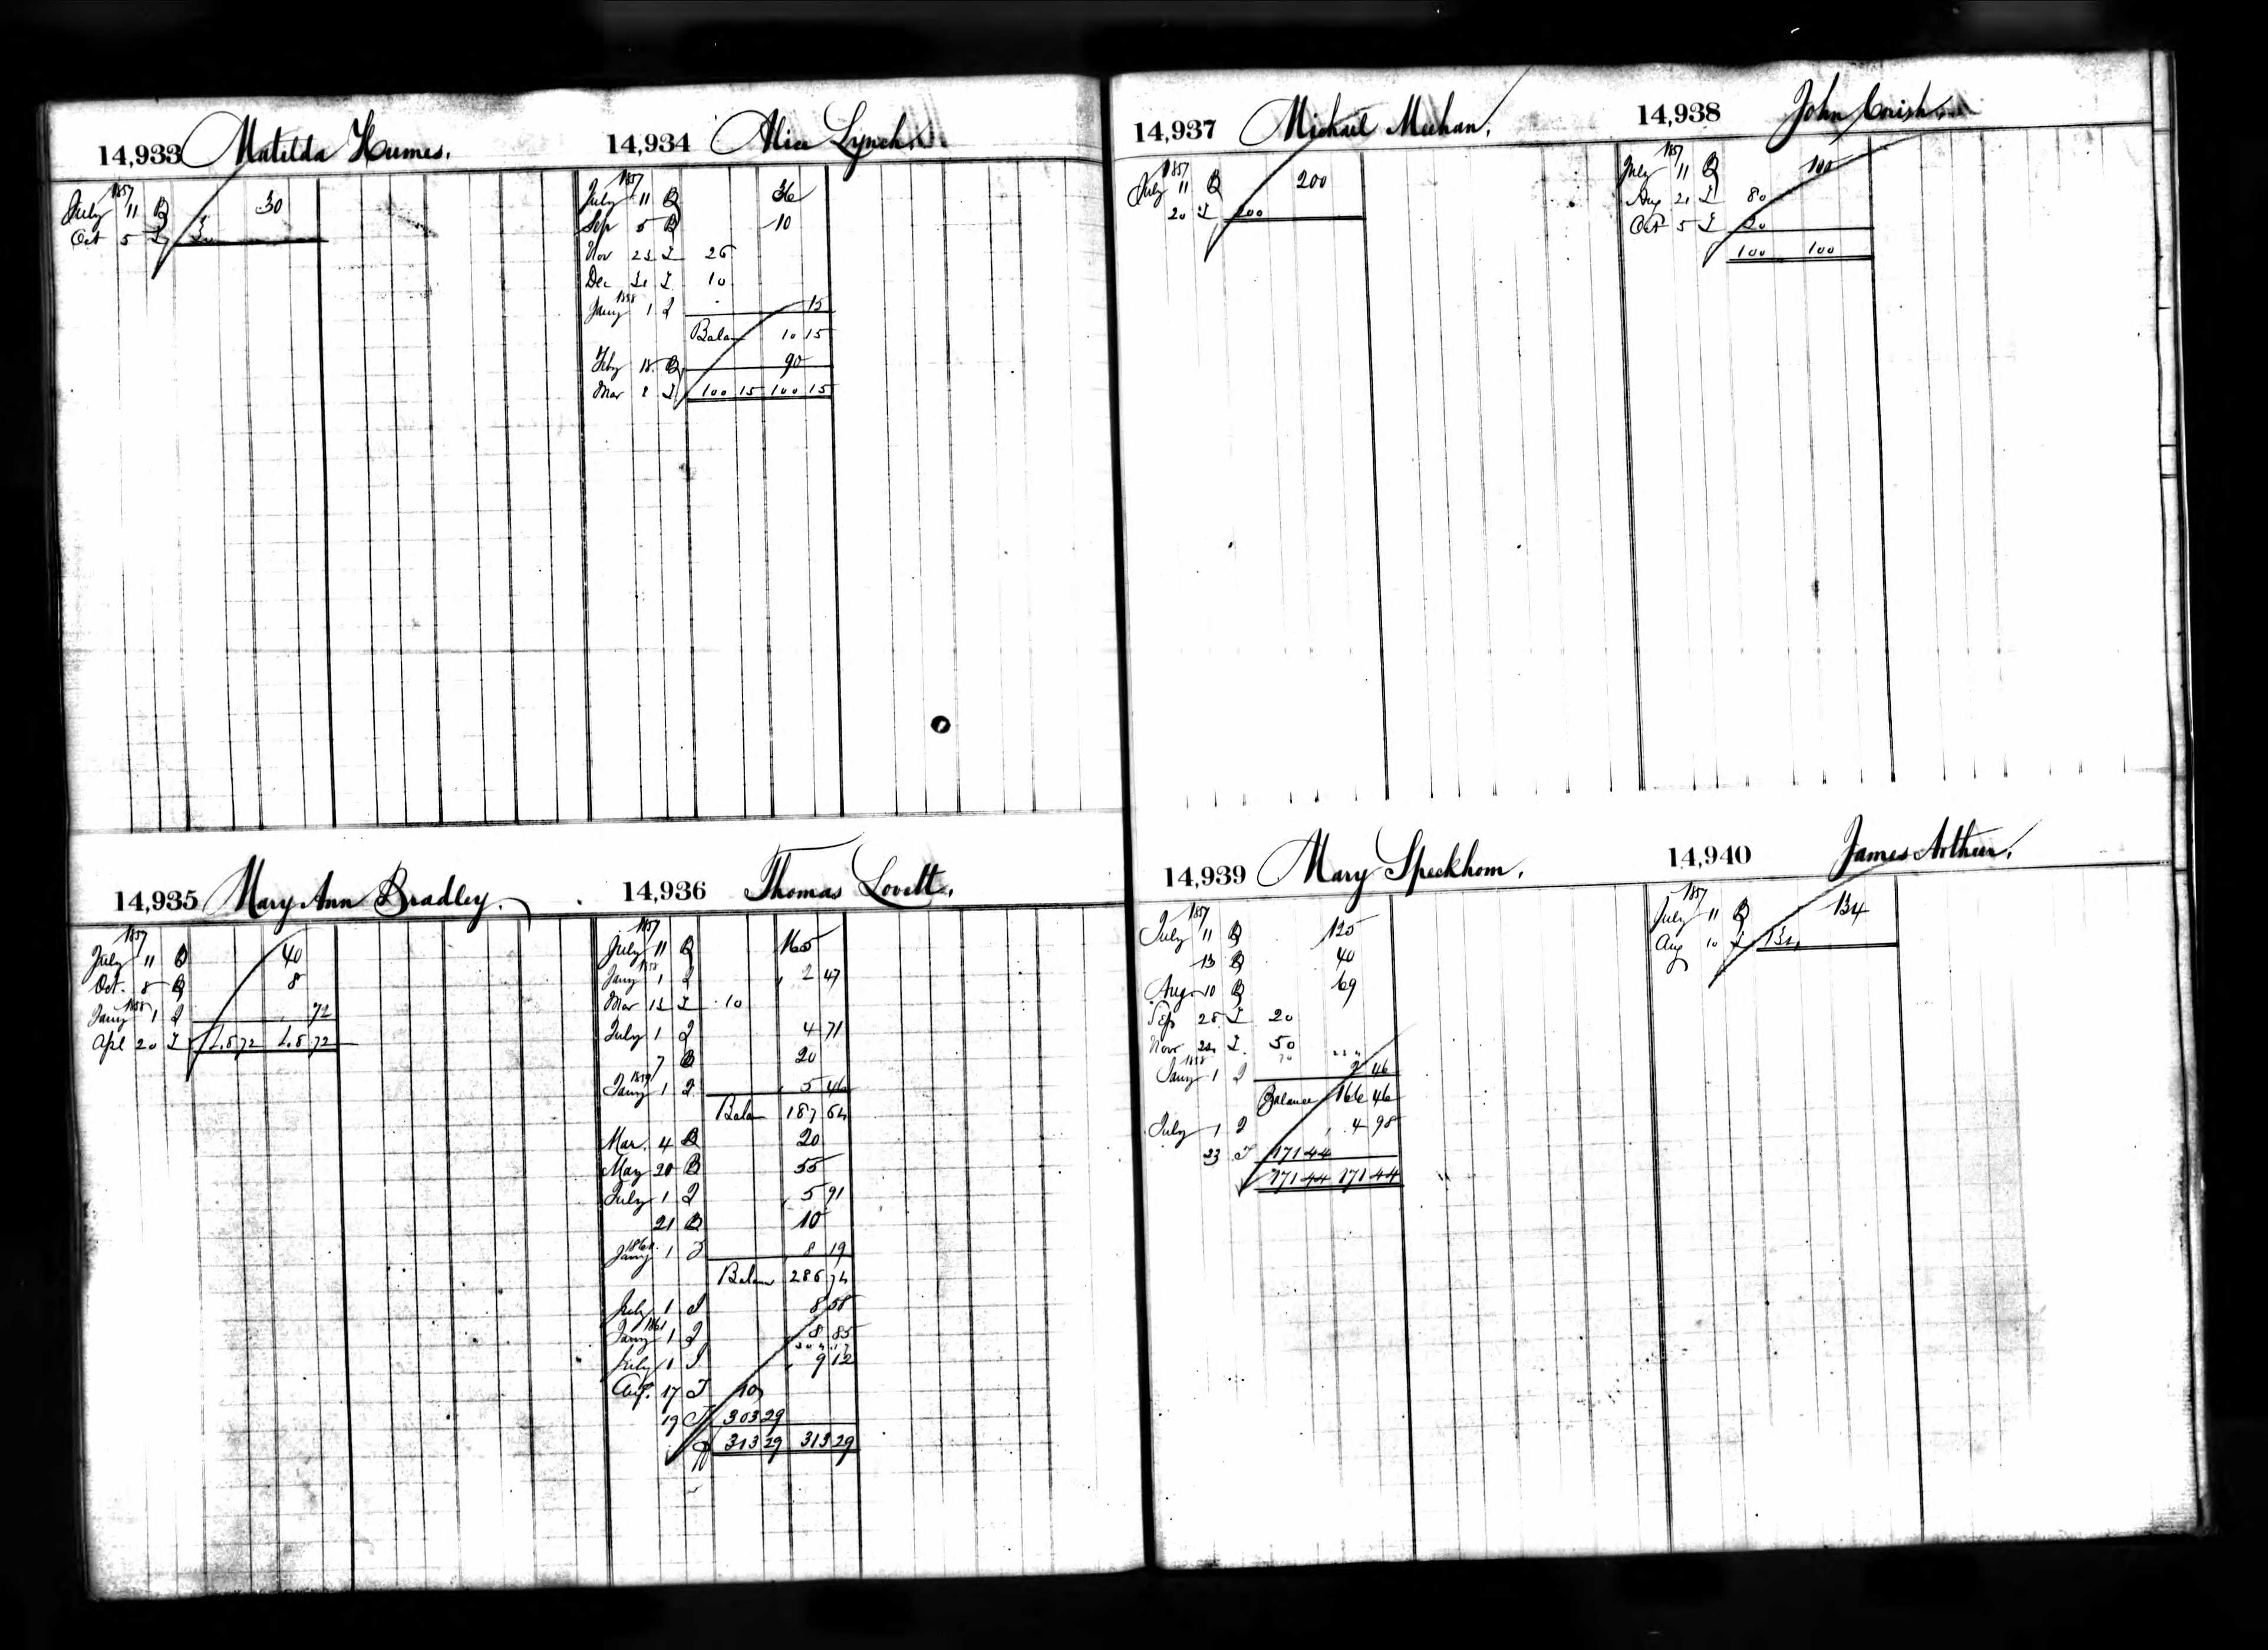 14,933 Matilda Humes.
1857
July 11 B 30
Oct 5 T 30
14,934 Alice Lynch.
1857
July 11 B 36
Sep 5 B 10
Nov 23 T 26
Dec 31 T 10
1858
Jany 1 I 15
Balan 10 15
Feby 18 B 90
Mar 8 T 100 15 100 15
14,935 Mary Ann Bradley.
1857
July 11 B 40
Oct. 8 B 8
1858
Jany 1 I 72
Apl 20 T 48 72 48 72
14,936 Thomas Lovett.
1857
July 11 B 165
1858
Jany 1 I 2 47
Mar 13 T 10
July 1 I 4 71
7 B 20
1859
Jany 1 I 5 46
Balan 187 64
Mar. 4 B 20
May 20 B 55
July 1 I 5 91
21 B 10
1860
Jany 1 I 8 19
Balan 286 74
July 1 I 8 58
1861
Jany 1 I 8 85
304 17
July 1 I 9 12
Aug. 17 T 10
19 T 303 29
313 29 313 29
14,937 Michael Meehan.
1857
July 11 B 200
20 T 200
14,938 John Corish.
1857
July 11 B 100
Aug 21 T 80
Oct 5 T 20
100 100
14,939 Mary Speckhom.
1857
July 11 B 125
13 B 40
Aug. 10 B 69
Sep 28 T 20
Nov 24 T 50
70 234
1858
Jany 1 I 2 46
Balance 166 46
July 1 I 4 98
23 T 171 44
171 44 171 44
14,940 James Arthur.
1857
July 11 B 134
Aug 10 T 134